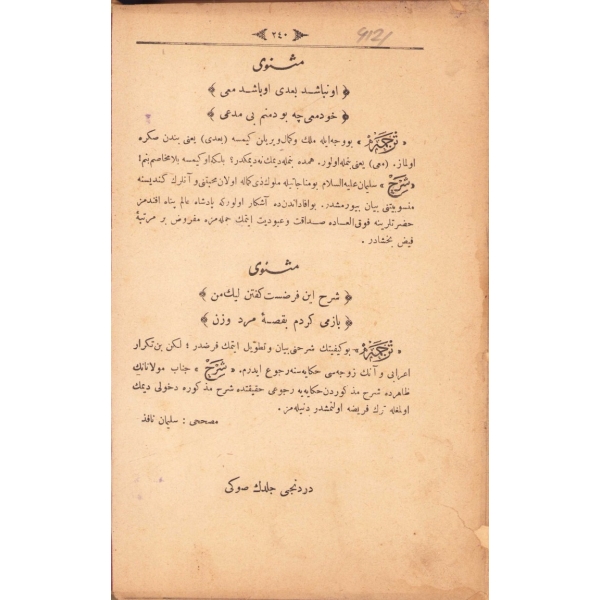 ٢٤٠
9121
مثنوی
﴿ اونباشد بعدی اوباشد معی ﴾
﴿ خودمعی چه بودمنم بی مدعی ﴾
« ترجمه » بووجه ایله ملك وكمال ویریلن كیمسه (بعدی) یعنی بندن صكره
اولماز. (معی) یعنی بنمله اولور. همده بنمله دیمك نه دیمكدر؟ بلكه او كیمسه بلامخاصم بنم!
« شرح » سلیمان علیه السلام بومناجاتیله ملوك ذی كماله اولان محبتنی و آنلرك كندیسنه
منسوبیتنی بیان بیورمشدر. بوافاداندن ده آشكار اولورکه پادشاه عالم پناه افندمز
حضرتلرینه فوق العاده صداقت وعبودیت ایتمك جمله مزه مفروض بر مرتبهٔ
فیض بخشادر.
مثنوی
﴿ شرح این فرضست گفتن لیك من ﴾
﴿ بازمی كردم بقصهٔ مرد وزن ﴾
« ترجمه » بوكیفیتك شرحنی بیان و تطویل ایتمك فرضدر ؛ لكن بن تكرار
اعرابی و آنك زوجه سی حكایه سنه رجوع ایدرم. « شرح » جناب مولانانك
ظاهرده شرح مذكوردن حكایه یه رجوعی حقیقتده شرح مذكوره دخولی دیمك
اولمغله ترك فریضه اولنمشدر دنیله مز.
مصححی : سلیمان نافذ
دردنجی جلدك صوكی